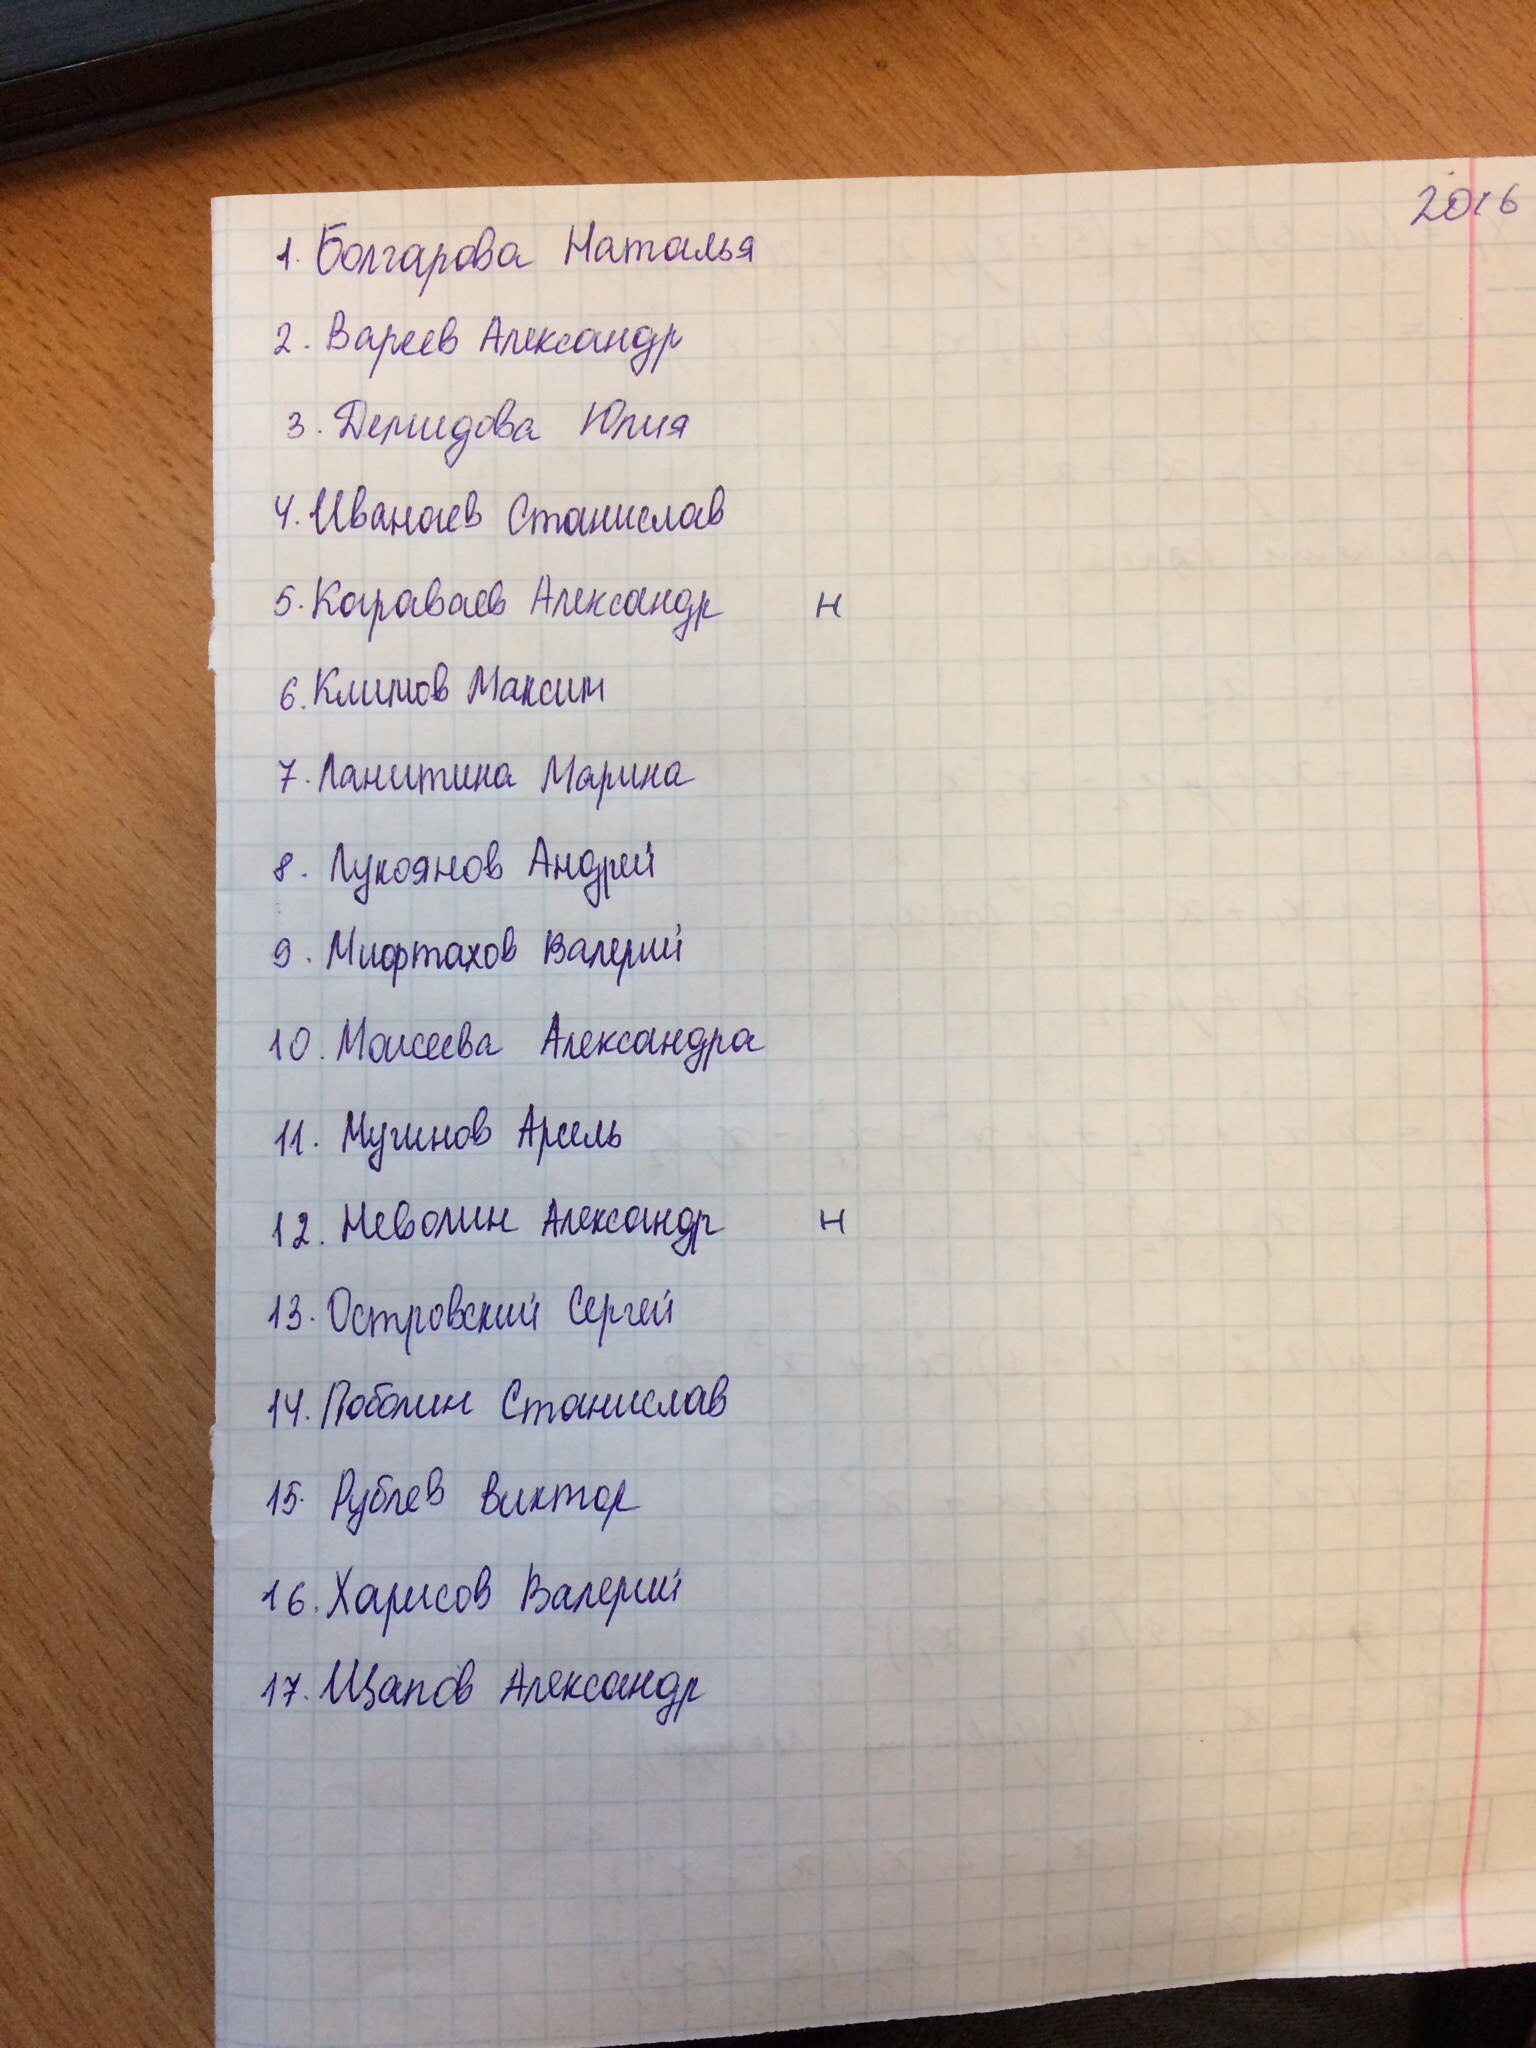 2016
1. Болгарова Наталья
2. Вареев Александр
3. Демидова Юлия
4. Иванаев Станислав
5. Караваев Александр н
6. Климов Максим
7. Ланитина Марина
8. Лукоянов Андрей
9. Мифтахов Валерий
10. Моисеева Александра
11. Мугинов Арсль
12. Неволин Александр н
13. Островский Сергей
14. Поболин Станислав
15. Рублев Виктор
16. Харисов Валерий
17. Щапов Александр